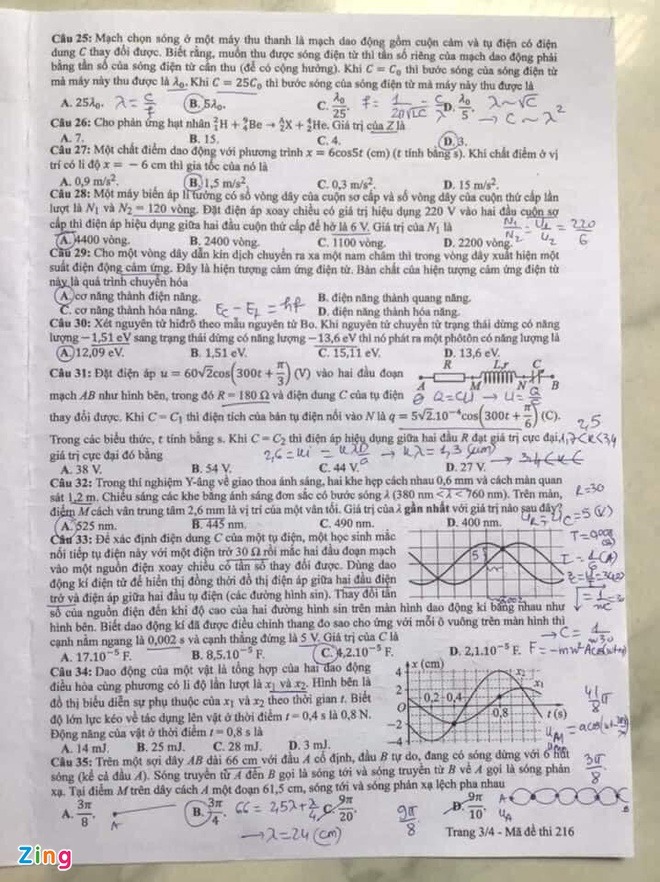 Câu 25: Mạch chọn sóng ở một máy thu thanh là mạch dao động gồm cuộn cảm và tụ điện có điện
dung C thay đổi được. Biết rằng, muốn thu được sóng điện từ thì tần số riêng của mạch dao động phải
bằng tần số của sóng điện từ cần thu (để có cộng hưởng). Khi C = C₀ thì bước sóng của sóng điện từ
mà máy này thu được là λ₀. Khi C = 25C₀ thì bước sóng của sóng điện từ mà máy này thu được là
A. 25λ₀. λ = c/f B. 5λ₀. C. λ₀/25. D. λ₀/5. λ ~ √C → C ~ λ²
Câu 26: Cho phản ứng hạt nhân ²₁H + ⁹₄Be → ᴬ_ZX + ⁴₂He. Giá trị của Z là
A. 7. B. 15. C. 4. D. 3.
Câu 27: Một chất điểm dao động với phương trình x = 6cos5t (cm) (t tính bằng s). Khi chất điểm ở vị
trí có li độ x = − 6 cm thì gia tốc của nó là
A. 0,9 m/s². B. 1,5 m/s². C. 0,3 m/s². D. 15 m/s².
Câu 28: Một máy biến áp lí tưởng có số vòng dây của cuộn sơ cấp và số vòng dây của cuộn thứ cấp lần
lượt là N₁ và N₂ = 120 vòng. Đặt điện áp xoay chiều có giá trị hiệu dụng 220 V vào hai đầu cuộn sơ
cấp thì điện áp hiệu dụng giữa hai đầu cuộn thứ cấp để hở là 6 V. Giá trị của N₁ là
A. 4400 vòng. B. 2400 vòng. C. 1100 vòng. D. 2200 vòng. N₁/N₂ = U₁/U₂ = 220/6
Câu 29: Cho một vòng dây dẫn kín dịch chuyển ra xa một nam châm thì trong vòng dây xuất hiện một
suất điện động cảm ứng. Đây là hiện tượng cảm ứng điện từ. Bản chất của hiện tượng cảm ứng điện từ
này là quá trình chuyển hóa
A. cơ năng thành điện năng. B. điện năng thành quang năng.
C. cơ năng thành hóa năng. D. điện năng thành hóa năng.
Câu 30: Xét nguyên tử hiđrô theo mẫu nguyên tử Bo. Khi nguyên tử chuyển từ trạng thái dừng có năng
lượng −1,51 eV sang trạng thái dừng có năng lượng −13,6 eV thì nó phát ra một phôtôn có năng lượng là
A. 12,09 eV. B. 1,51 eV. C. 15,11 eV. D. 13,6 eV.
Câu 31: Đặt điện áp u = 60√2cos(300t + π/3) (V) vào hai đầu đoạn
R L,r C
A M N B
mạch AB như hình bên, trong đó R = 180 Ω và điện dung C của tụ điện
thay đổi được. Khi C = C₁ thì điện tích của bản tụ điện nối vào N là q = 5√2.10⁻⁴cos(300t + π/6) (C).
Trong các biểu thức, t tính bằng s. Khi C = C₂ thì điện áp hiệu dụng giữa hai đầu R đạt giá trị cực đại,
giá trị cực đại đó bằng
A. 38 V. B. 54 V. C. 44 V. D. 27 V.
Câu 32: Trong thí nghiệm Y-âng về giao thoa ánh sáng, hai khe hẹp cách nhau 0,6 mm và cách màn quan
sát 1,2 m. Chiếu sáng các khe bằng ánh sáng đơn sắc có bước sóng λ (380 nm < λ < 760 nm). Trên màn,
điểm M cách vân trung tâm 2,6 mm là vị trí của một vân tối. Giá trị của λ gần nhất với giá trị nào sau đây?
A. 525 nm. B. 445 nm. C. 490 nm. D. 400 nm.
Câu 33: Để xác định điện dung C của một tụ điện, một học sinh mắc
nối tiếp tụ điện này với một điện trở 30 Ω rồi mắc hai đầu đoạn mạch
vào một nguồn điện xoay chiều có tần số thay đổi được. Dùng dao
động kí điện tử để hiển thị đồng thời đồ thị điện áp giữa hai đầu điện
trở và điện áp giữa hai đầu tụ điện (các đường hình sin). Thay đổi tần
số của nguồn điện đến khi độ cao của hai đường hình sin trên màn hình dao động kí bằng nhau như
hình bên. Biết dao động kí đã được điều chỉnh thang đo sao cho ứng với mỗi ô vuông trên màn hình thì
cạnh nằm ngang là 0,002 s và cạnh thẳng đứng là 5 V. Giá trị của C là
A. 17.10⁻⁵ F. B. 8,5.10⁻⁵ F. C. 4,2.10⁻⁵ F. D. 2,1.10⁻⁵ F.
Câu 34: Dao động của một vật là tổng hợp của hai dao động
điều hòa cùng phương có li độ lần lượt là x₁ và x₂. Hình bên là
đồ thị biểu diễn sự phụ thuộc của x₁ và x₂ theo thời gian t. Biết
độ lớn lực kéo về tác dụng lên vật ở thời điểm t = 0,4 s là 0,8 N.
Động năng của vật ở thời điểm t = 0,8 s là
A. 14 mJ. B. 25 mJ. C. 28 mJ. D. 3 mJ.
x (cm)
4
2
0
−2
−4
0,2 0,4 0,8 t (s)
x₂
x₁
Câu 35: Trên một sợi dây AB dài 66 cm với đầu A cố định, đầu B tự do, đang có sóng dừng với 6 nút
sóng (kể cả đầu A). Sóng truyền từ A đến B gọi là sóng tới và sóng truyền từ B về A gọi là sóng phản
xạ. Tại điểm M trên dây cách A một đoạn 61,5 cm, sóng tới và sóng phản xạ lệch pha nhau
A. 3π/8. B. 3π/4. C. 9π/20. D. 9π/10.
→ λ = 24 (cm)
9π/8
Trang 3/4 - Mã đề thi 216
Zing